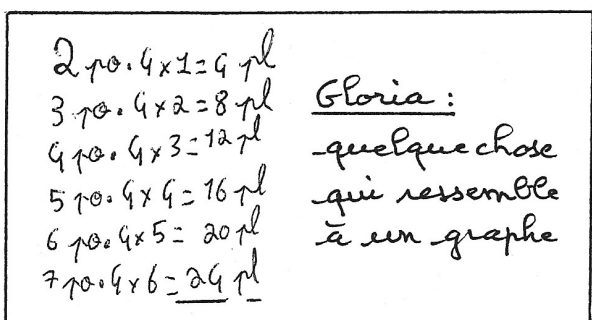 2 po. 4x1=4 pl
3 po. 4x2=8 pl
4 po. 4x3=12 pl
5 po. 4x4=16 pl
6 po. 4x5= 20 pl
7 po. 4x6=24 pl
Gloria :
quelque chose
qui ressemble
à un graphe